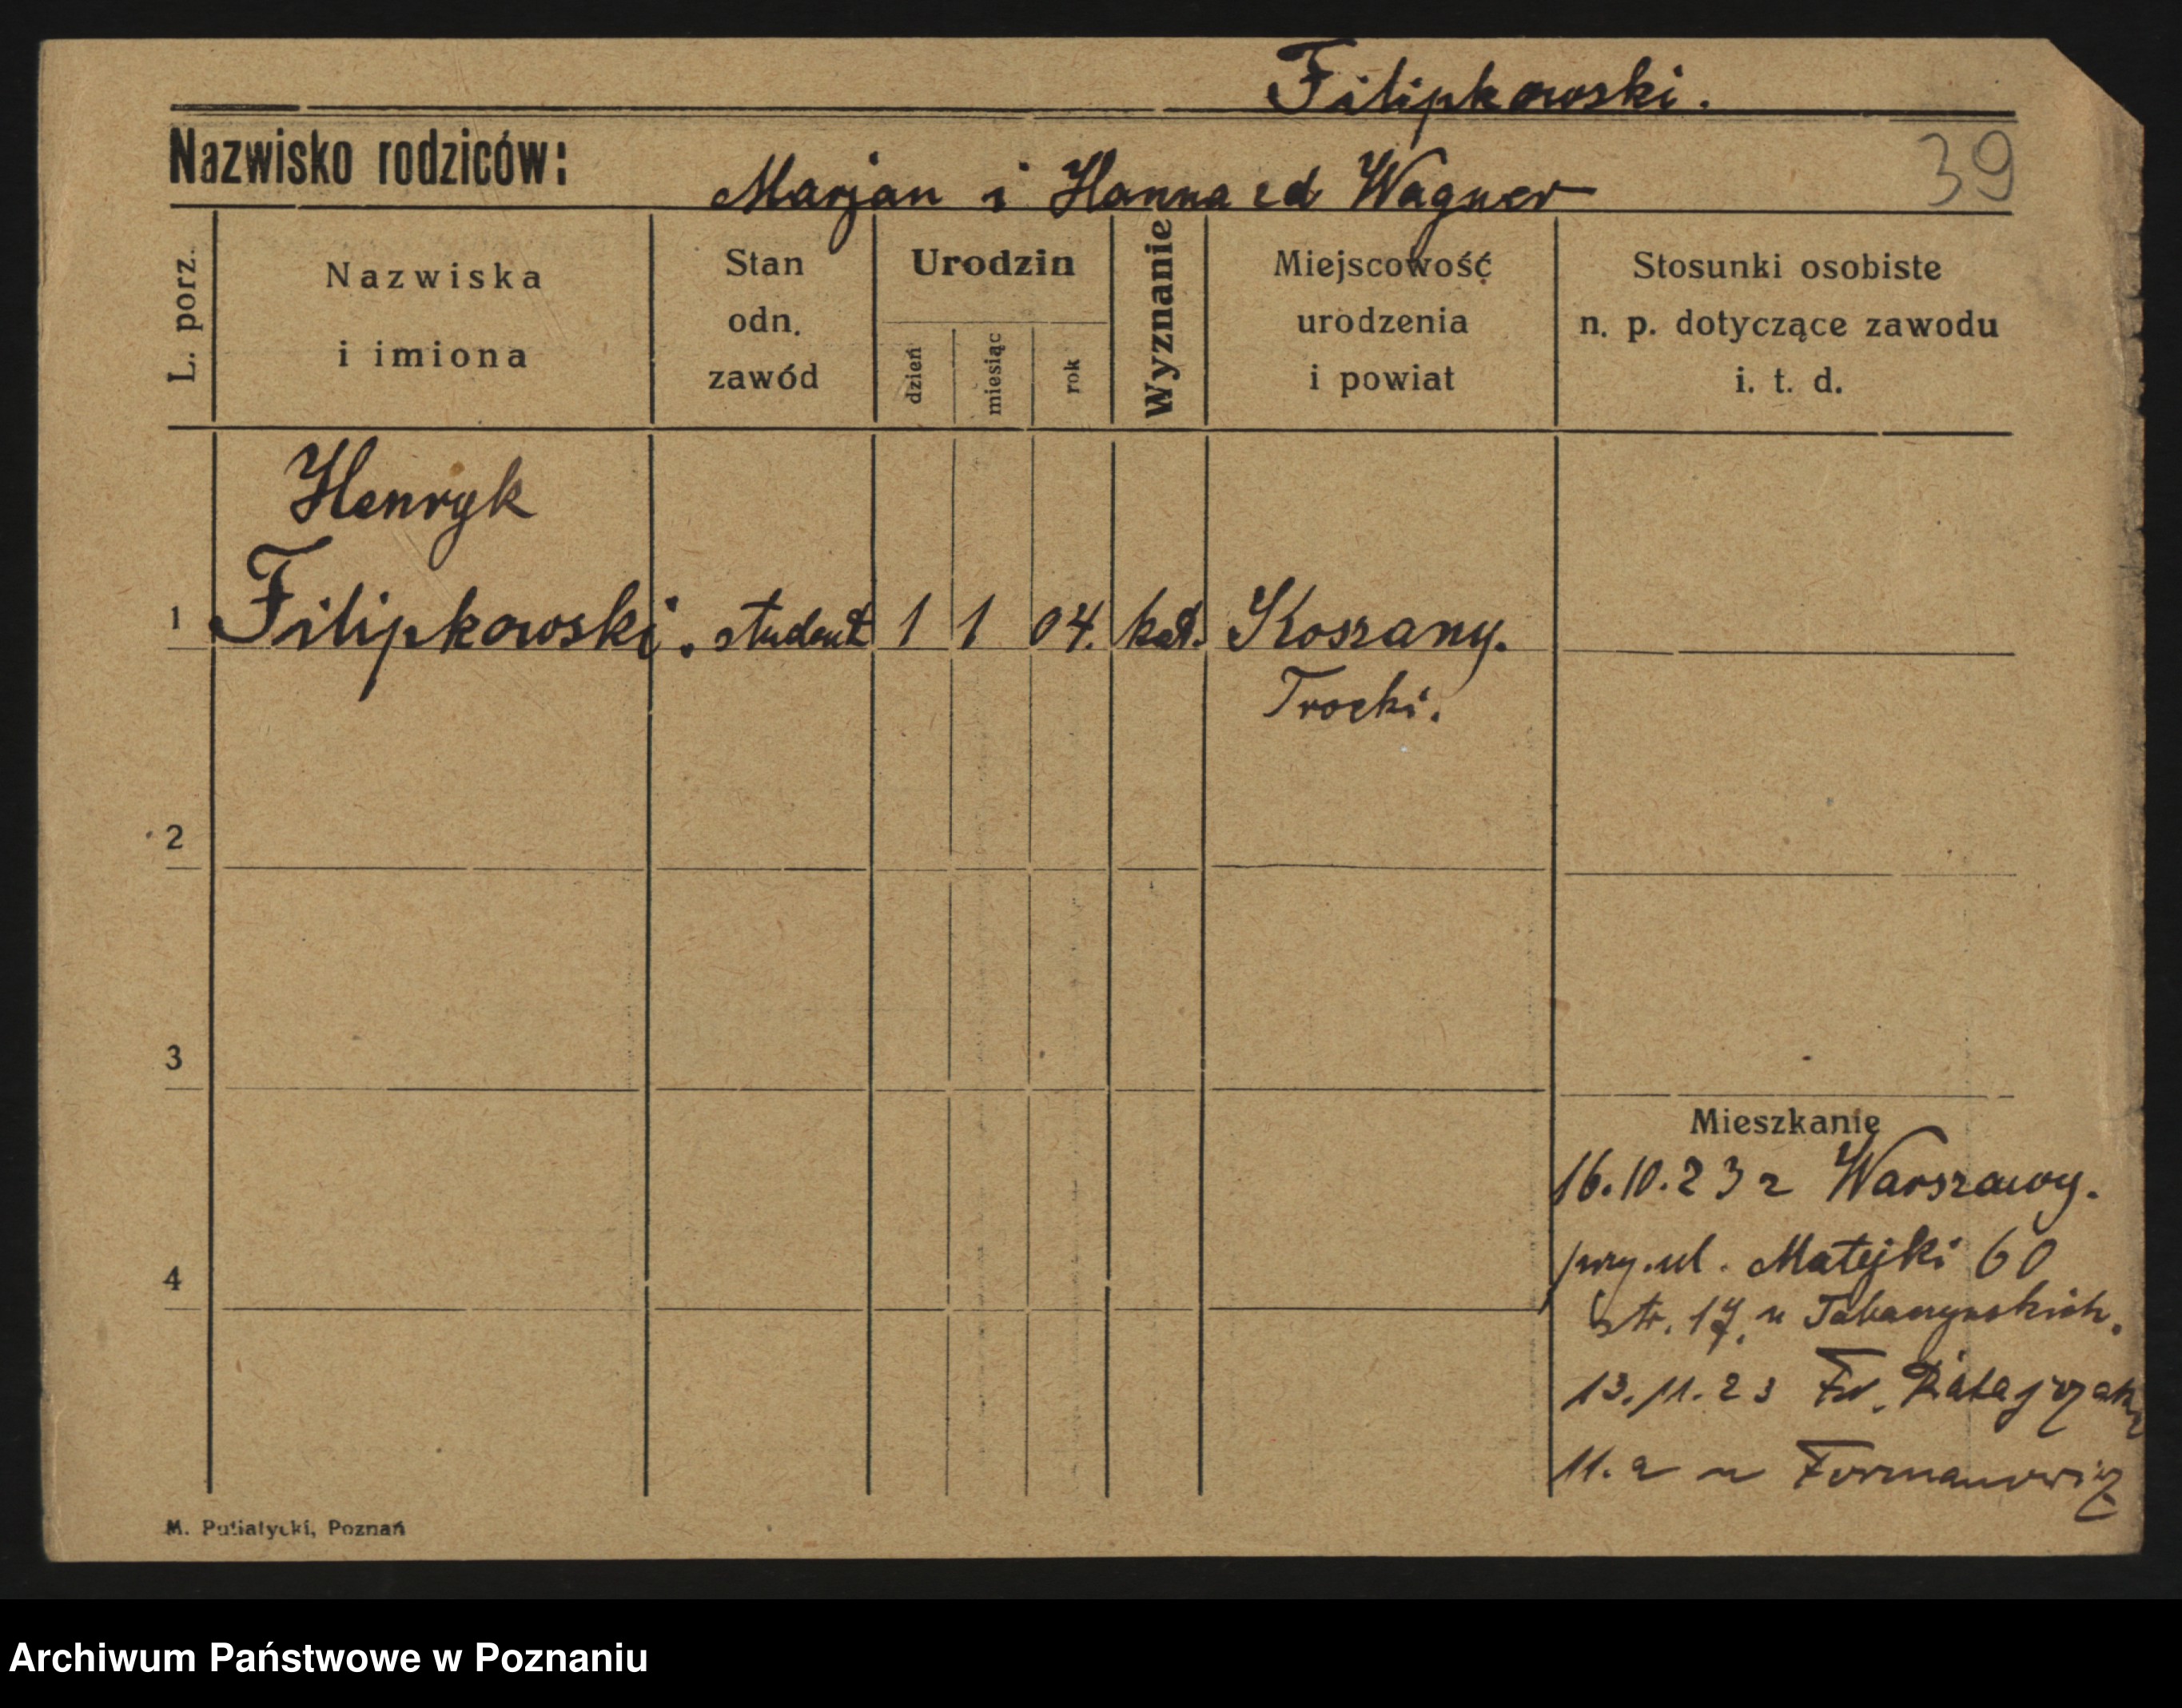 Filipkowski.
Nazwisko rodziców:
Marjan i Hanna zd Wagner
39
L. porz.
Nazwiska
i imiona
Stan
odn.
zawód
Urodzin
dzień
miesiąc
rok
Wyznanie
Miejscowość
urodzenia
i powiat
Stosunki osobiste
n. p. dotyczące zawodu
i. t. d.
Henryk
1 Filipkowski. student 1 1 04. kat. Koszany.
Trocki.
2
3
Mieszkanie
16.10.23 z Warszawy.
przy.ul. Matejki 60
4
str. 17. u
13.11.23 Fr. Ratajczaka
11.a u Formanowicz
M. Putiatycki, Poznań
Archiwum Państwowe w Poznaniu